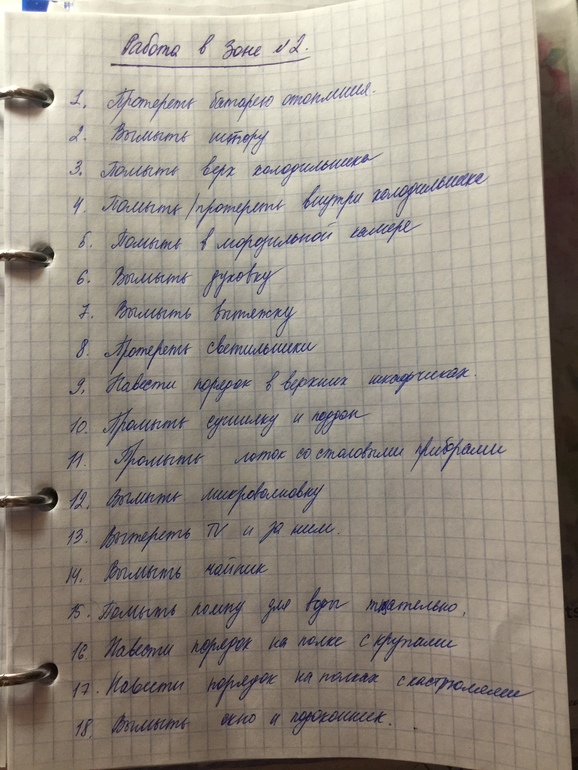 Работа в Зоне №2.
1. Протереть батарею отопления.
2. Вымыть штору
3. Помыть верх холодильника
4. Помыть/протереть внутри холодильника
5. Помыть в морозильной камере
6. Вымыть духовку
7. Вымыть вытяжку
8. Протереть светильники
9. Навести порядок в верхних шкафчиках.
10. Промыть сушилку и поддон
11. Промыть лоток со столовыми приборами
12. Вымыть микроволновку
13. Вытереть TV и за ним.
14. Вымыть чайник
15. Помыть помпу для воды тщательно.
16 Навести порядок на полке с крупами
17. Навести порядок на полках с кастрюлями
18. Вымыть окно и подоконник.